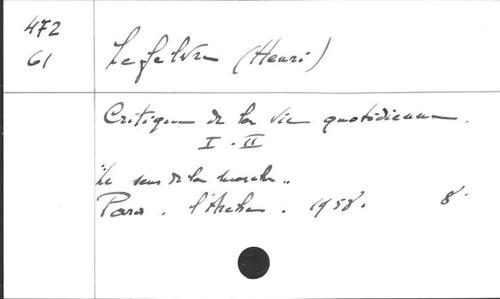 472
61
Lefebvre (Henri)
Critique de la vie quotidienne.
I. II
"Le sens de la marche"
Paris. l'Arche. 1958. 8°